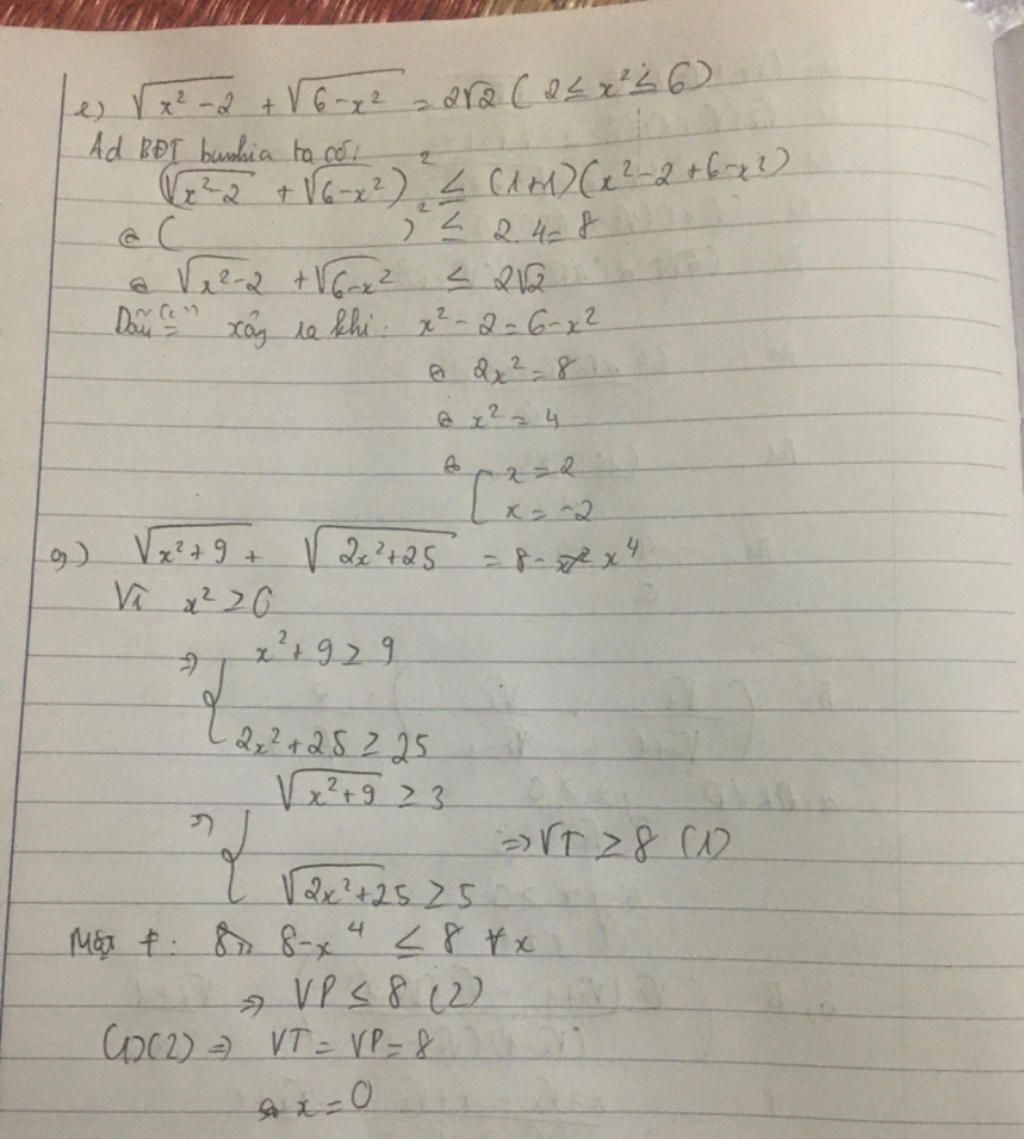 e) √(x² - 2) + √(6 - x²) = 2√2 ( 2 ≤ x² ≤ 6)
Ad BĐT bunhia ta có:
(√(x² - 2) + √(6 - x²))² ≤ (1+1)(x² - 2 + 6 - x²)
⇔ ( )² ≤ 2.4 = 8
⇔ √(x² - 2) + √(6 - x²) ≤ 2√2
Dấu "=" xảy ra khi: x² - 2 = 6 - x²
⇔ 2x² = 8
⇔ x² = 4
⇔ [ x = 2
x = -2
g) √(x² + 9) + √(2x² + 25) = 8 - x⁴
Vì x² ≥ 0
⇒ { x² + 9 ≥ 9
2x² + 25 ≥ 25
⇒ { √(x² + 9) ≥ 3
⇒ VT ≥ 8 (1)
√(2x² + 25) ≥ 5
Mặt ≠: 8 - x⁴ ≤ 8 ∀x
⇒ VP ≤ 8 (2)
(1)(2) ⇒ VT = VP = 8
⇔ x = 0